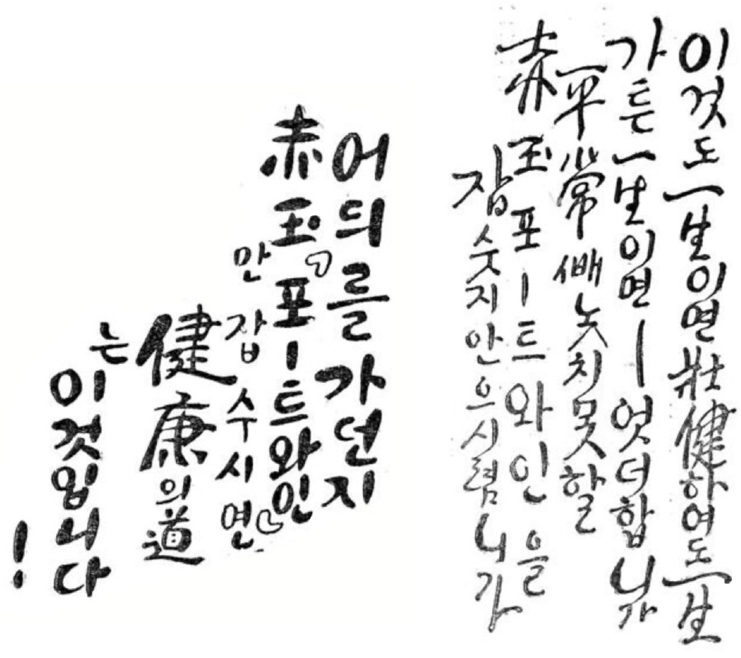 이것도一生이면壯健하여도一生
가튼一生이면ー엇더합니가
平常빼놋치못할
赤玉포ー트와인을
잡숫지안으시렴니가
어듸를가던지
赤玉포ー트와인
만잡수시면
健康의道
는
이것입니다
!